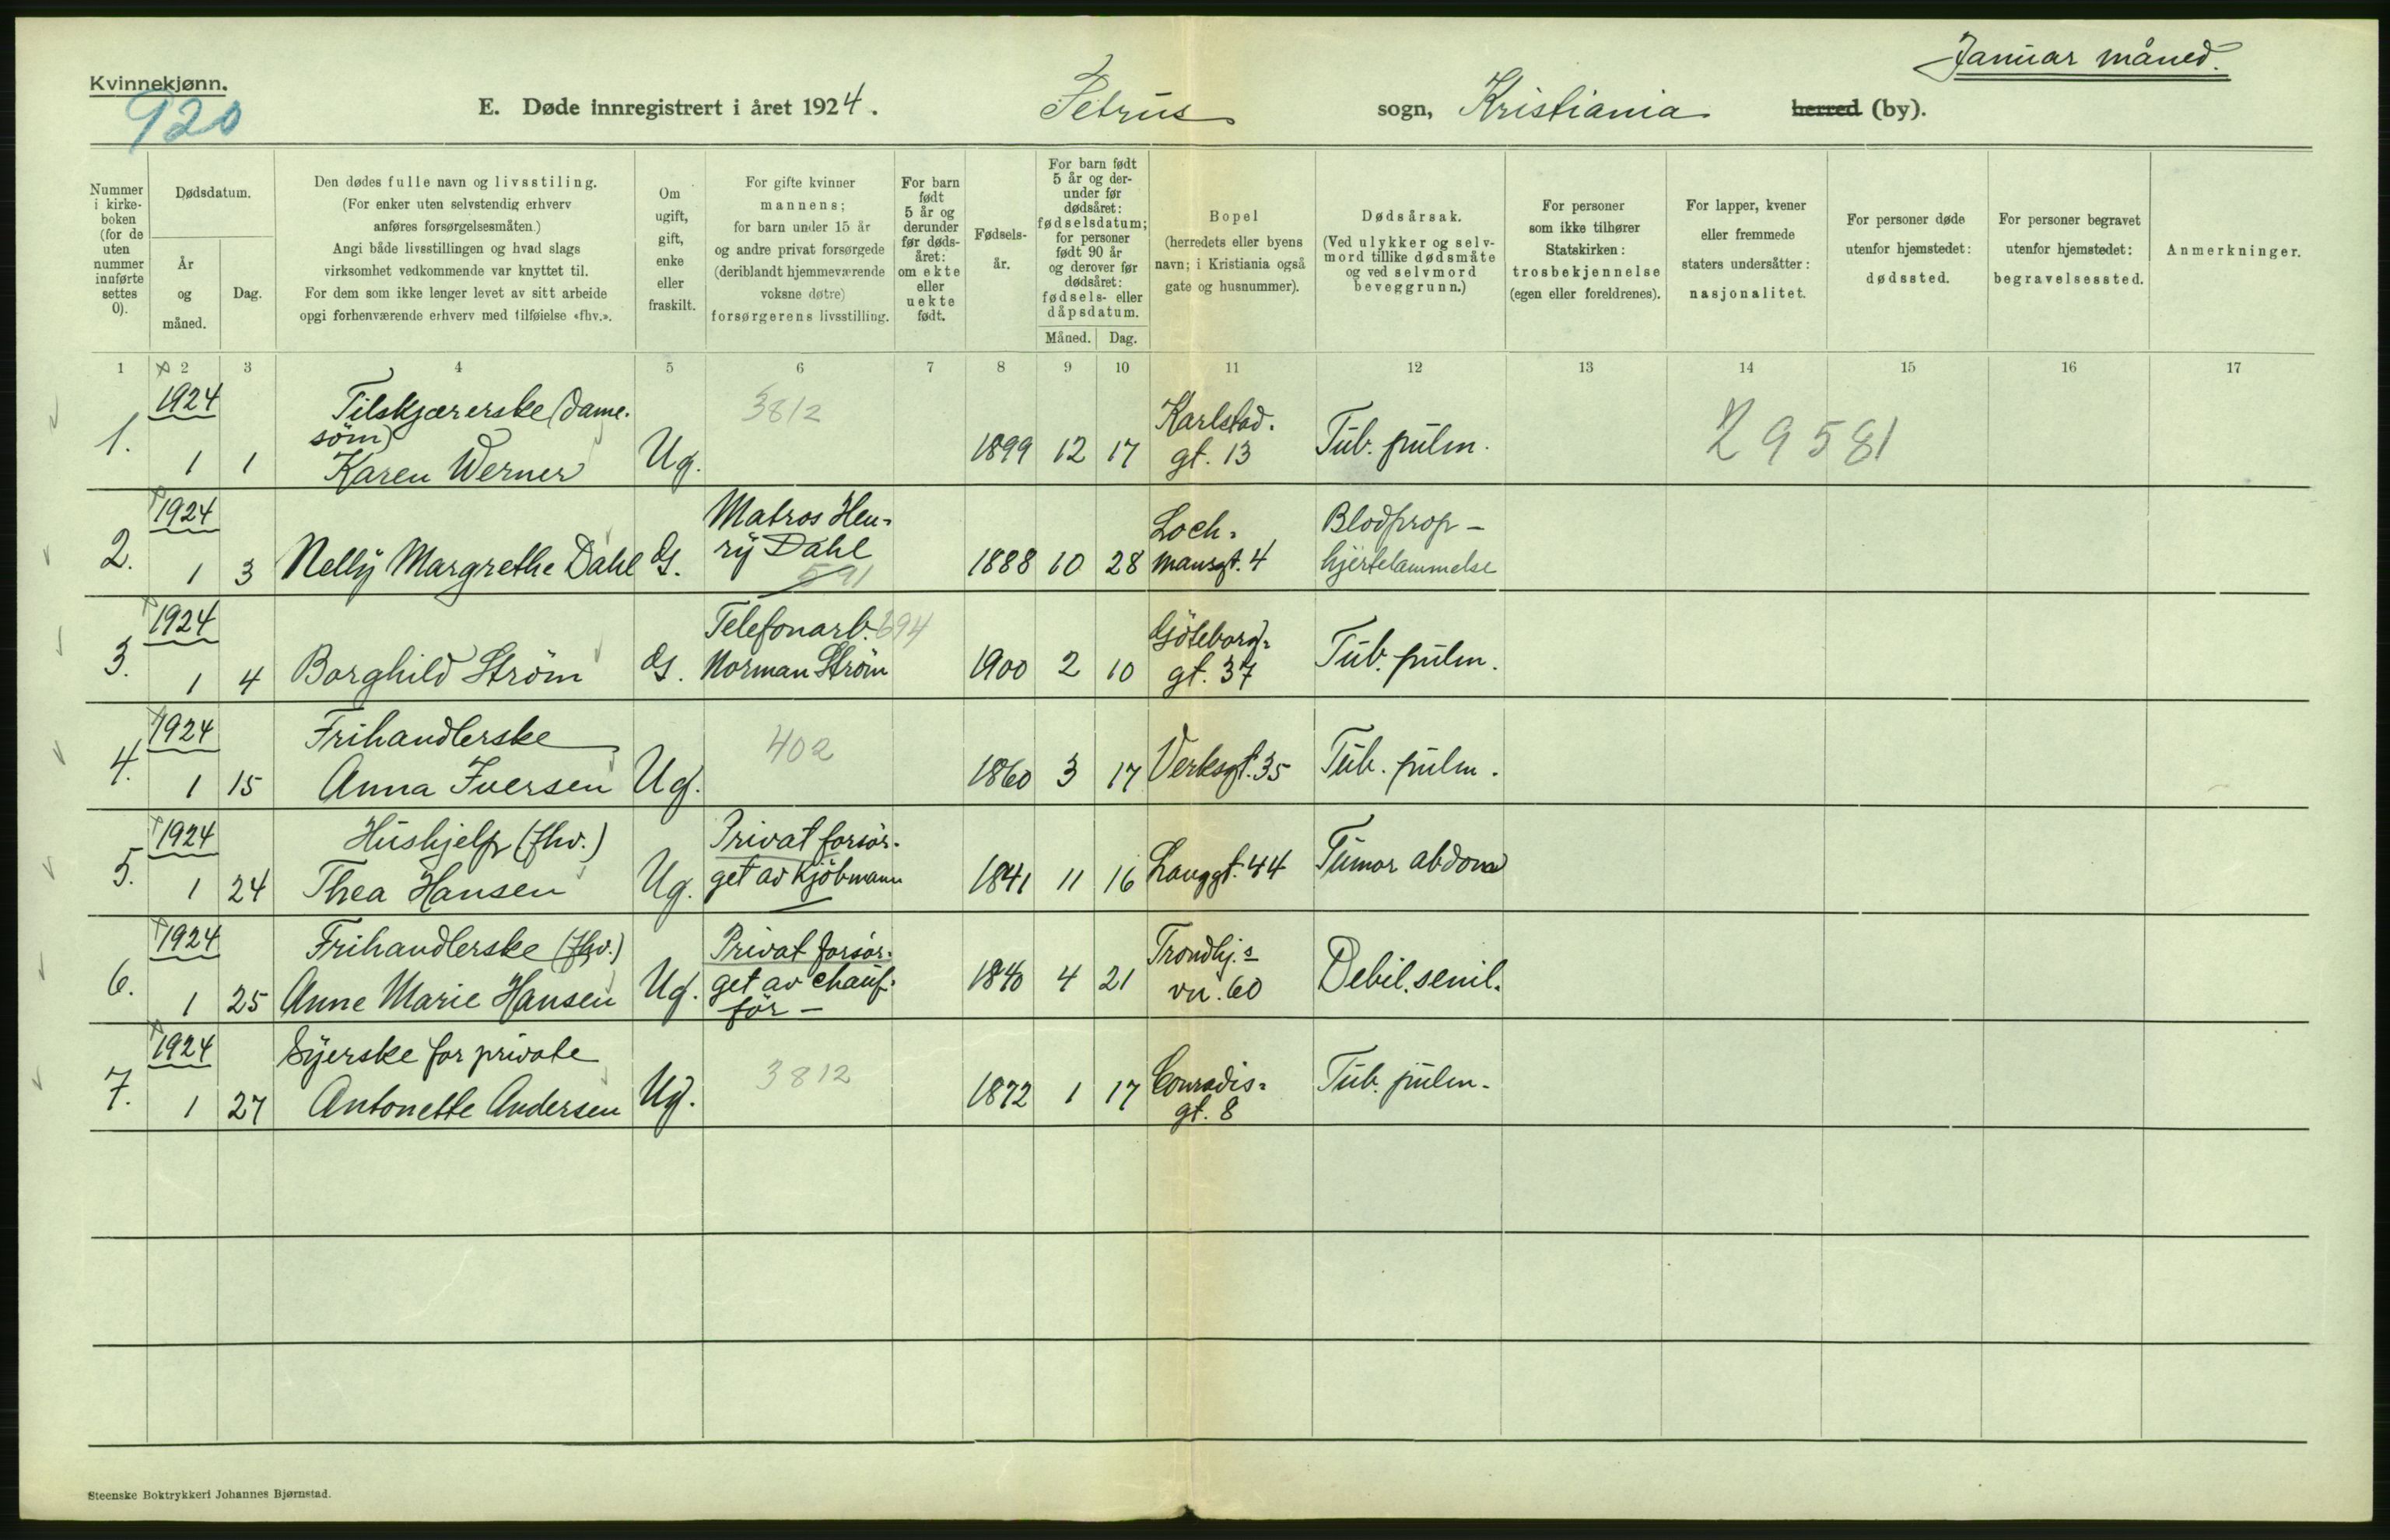 Januar måned.
Kvinnekjønn.
920
E. Døde innregistrert i året 1924. Petrus sogn, Kristiania herred (by).
Nummer i kirke-boken (for de uten nummer innførte settes 0).
Dødsdatum.
År og måned.
Dag.
Den dødes fulle navn og livsstiling.
(For enker uten selvstendig erhverv
anføres forsørgelsesmåten.)
Angi både livsstillingen og hvad slags
virksomhet vedkommende var knyttet til.
For dem som ikke lenger levet av sitt arbeide
opgi forhenværende erhverv med tilføielse «fhv.».
Om ugift, gift, enke eller fraskilt.
For gifte kvinner
mannens;
for barn under 15 år
og andre privat forsørgede
(deriblandt hjemmeværende
voksne døtre)
forsørgerens livsstilling.
For barn født 5 år og derunder før døds-året: om ekte eller uekte født.
Fødsels-år.
For barn født
5 år og der-
under før
dødsåret:
fødselsdatum;
for personer
født 90 år
og derover før
dødsåret:
fødsels- eller
dåpsdatum.
Måned. Dag.
Bopel
(herredets eller byens
navn; i Kristiania også
gate og husnummer).
Dødsårsak.
(Ved ulykker og selv-
mord tillike dødsmåte
og ved selvmord
beveggrunn.)
For personer
som ikke tilhører
Statskirken:
trosbekjennelse
(egen eller foreldrenes).
For lapper, kvener
eller fremmede
staters undersåtter:
nasjonalitet.
For personer døde
utenfor hjemstedet:
dødssted.
For personer begravet
utenfor hjemstedet:
begravelsessted.
Anmerkninger.
1 2 3 4 5 6 7 8 9 10 11 12 13 14 15 16 17
1924 Tilskjærerske (Dame- 3812 Karlstad-
søm)
1. 1 1 Karen Werner Ug. 1899 12 17 gt. 13 Tub. pulm. 29581
1924 Matros Hen- Loch- Blodprop-
2. 1 3 Nelly Margrethe Dahl G. ry Dahl 1888 10 28 mansgt. 4 hjertelammelse
591
1924 Telefonarb. 694 Göteborg-
3. 1 4 Borghild Strøm G. Norman Strøm 1900 2 10 gt. 37 Tub. pulm.
1924 Frihandlerske 402
4. 1 15 Anna Iversen Ug. 1860 3 17 Verksgt. 35 Tub. pulm.
1924 Hushjelp (fhv.) Privat forsør-
5. 1 24 Thea Hansen Ug. get av Kjøbmann 1841 11 16 Langgt. 44 Tumor abdom
1924 Frihandlerske (fhv.) Privat forsør- Trondhj.s
6. 1 25 Anne Marie Hansen Ug. get av chauf- 1840 4 21 vn. 60 Debil. senil.
før -
1924 Syerske for private 3812 Conradis-
7. 1 27 Antonette Andersen Ug. 1872 1 17 gt. 8 Tub. pulm.
Steenske Boktrykkeri Johannes Bjørnstad.